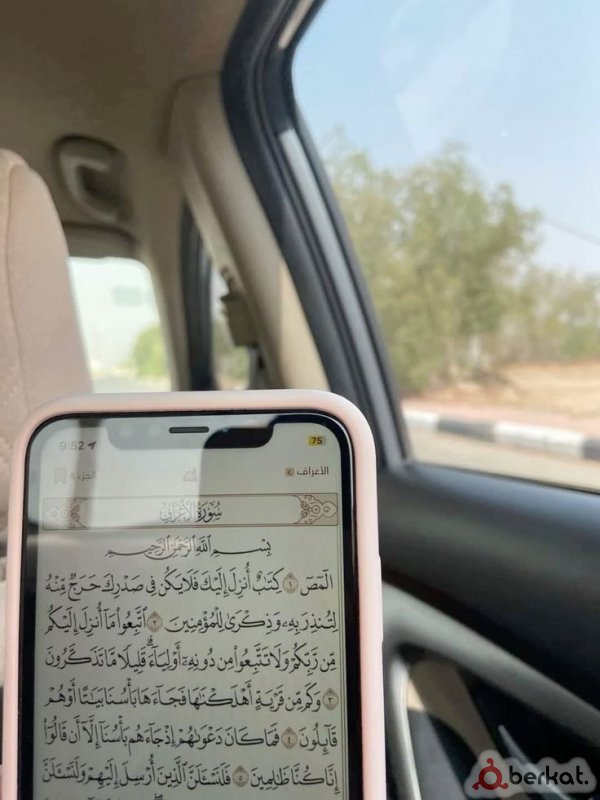 9:52
75
الأعراف
الجزء ٨
سُورَةُ الأَعْرَافِ
بِسْمِ اللَّهِ الرَّحْمَٰنِ الرَّحِيمِ
الٓمٓصٓ ١ كِتَٰبٌ أُنزِلَ إِلَيْكَ فَلَا يَكُن فِى صَدْرِكَ حَرَجٌ مِّنْهُ
لِتُنذِرَ بِهِۦ وَذِكْرَىٰ لِلْمُؤْمِنِينَ ٢ ٱتَّبِعُوا۟ مَآ أُنزِلَ إِلَيْكُم
مِّن رَّبِّكُمْ وَلَا تَتَّبِعُوا۟ مِن دُونِهِۦٓ أَوْلِيَآءَ ۗ قَلِيلًا مَّا تَذَكَّرُونَ
٣ وَكَم مِّن قَرْيَةٍ أَهْلَكْنَٰهَا فَجَآءَهَا بَأْسُنَا بَيَٰتًا أَوْ هُمْ
قَآئِلُونَ ٤ فَمَا كَانَ دَعْوَىٰهُمْ إِذْ جَآءَهُم بَأْسُنَآ إِلَّآ أَن قَالُوٓا۟
إِنَّا كُنَّا ظَٰلِمِينَ ٥ فَلَنَسْـَٔلَنَّ ٱلَّذِينَ أُرْسِلَ إِلَيْهِمْ وَلَنَسْـَٔلَنَّ
berkat.